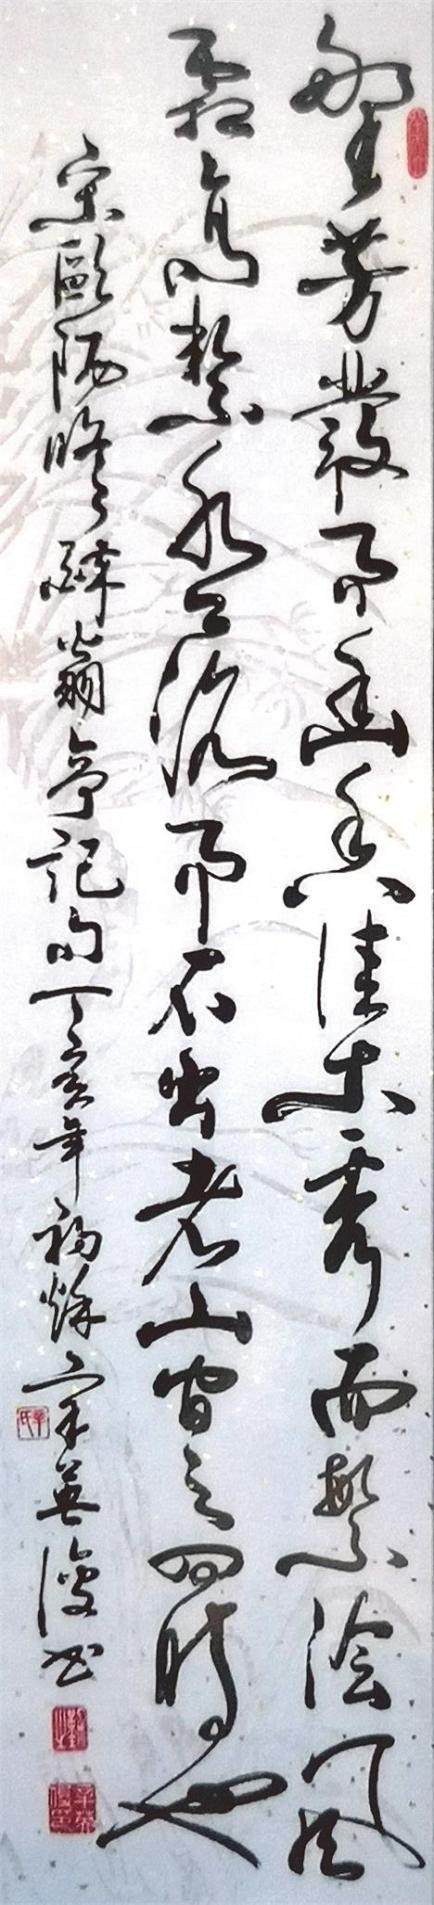 野芳發而幽香佳木秀而繁陰風
霜高絜水落而石出者山間之四時也
宋歐陽修醉翁亭記句丁亥年初秋辛英俊书
辛氏